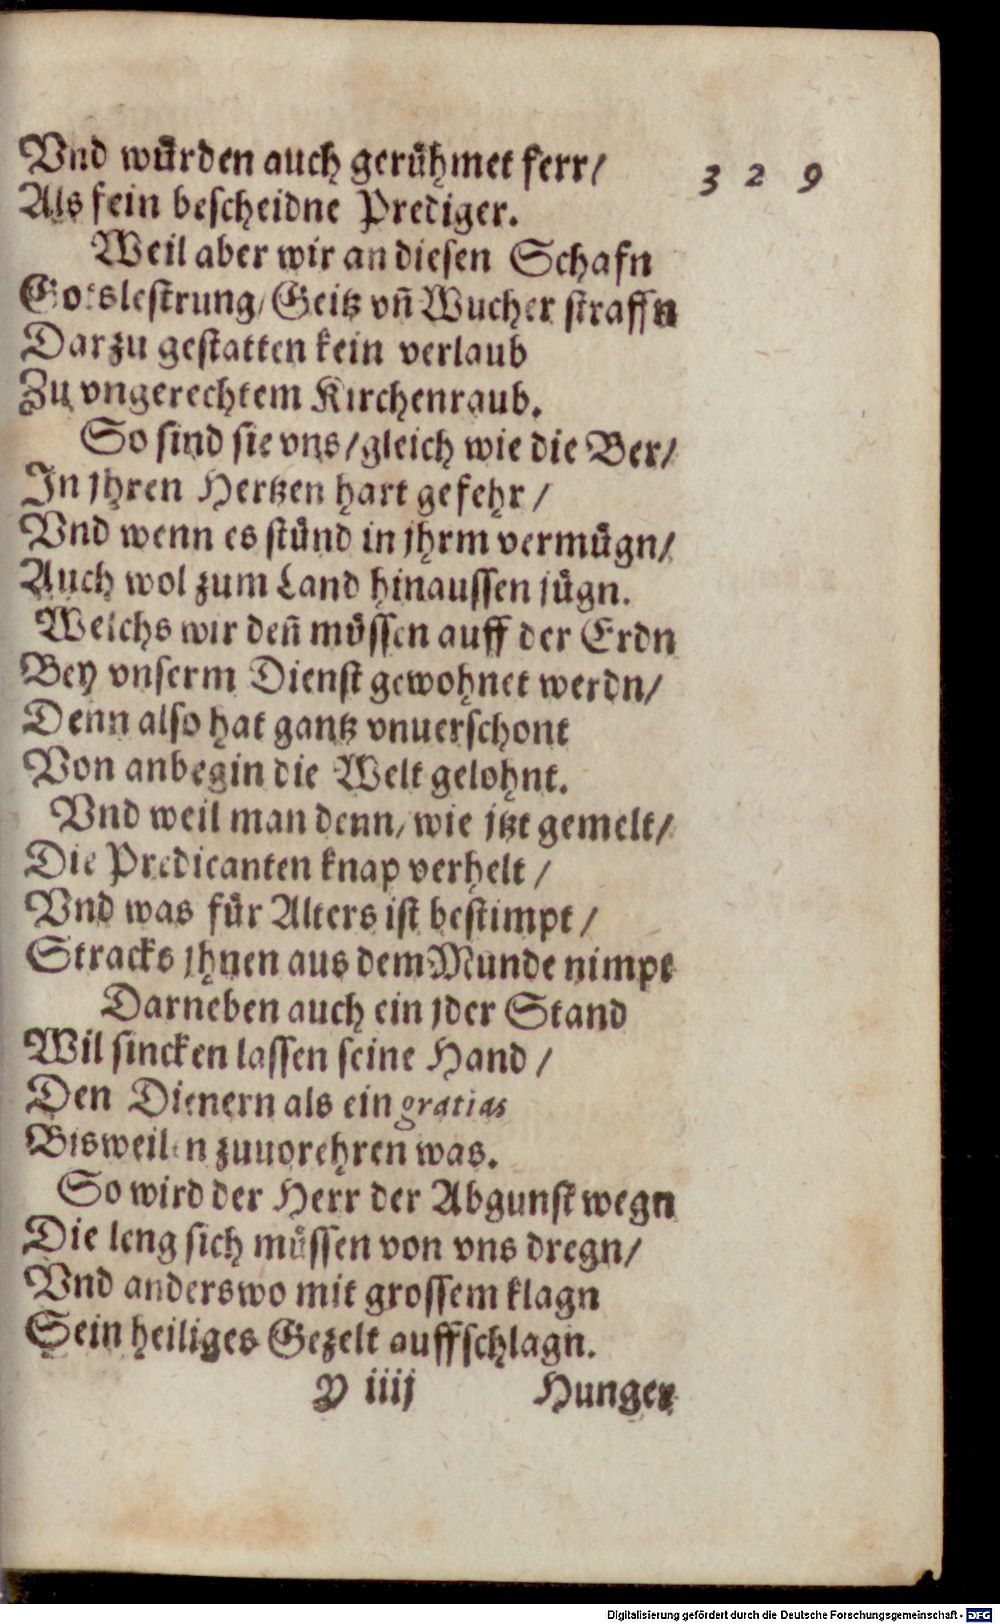 Vnd wuͤrden auch geruͤhmet ferr/
329
Als fein bescheidne Prediger.
Weil aber wir an diesen Schafn
Gotslestrung/ Geitz vn̄ Wucher straffn
Darzu gestatten kein verlaub
Zu vngerechtem Kirchenraub.
So sind sie vns/ gleich wie die Ber/
In jhren Hertzen hart gefehr/
Vnd wenn es stuͤnd in jhrm vermuͤgn/
Auch wol zum Land hinaussen juͤgn.
Welchs wir den̄ muͤssen auff der Erdn
Bey vnserm Dienst gewohnet werdn/
Denn also hat gantz vnuerschont
Von anbegin die Welt gelohnt.
Vnd weil man denn/ wie jtzt gemelt/
Die Predicanten knap verhelt/
Vnd was fuͤr Alters ist bestimpt/
Stracks jhnen aus dem Munde nimpt
Darneben auch ein jder Stand
Wil sincken lassen seine Hand/
Den Dienern als ein gratias
Bisweilen zuuorehren was.
So wird der Herr der Abgunst wegn
Die leng sich muͤssen von vns dregn/
Vnd anderswo mit grossem klagn
Sein heiliges Gezelt auffschlagn.
Y iiij Hunger
Digitalisierung gefördert durch die Deutsche Forschungsgemeinschaft - DFG